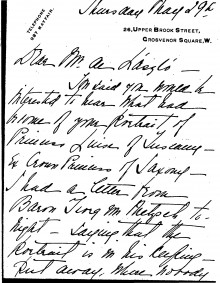 Thursday May 29th
TELEPHONE
MAYFAIR.
26, UPPER BROOK STREET,
GROSVENOR SQUARE, W.
Dear Mr de László –
You said you would be
interested to hear what had
become of your Portrait of
Princess Luise of Tuscany –
Ex Crown Princess of Saxony –
I had a letter from
Baron Georg to-
night – saying that the
Portrait is in his keeping –
Put away, where nobody